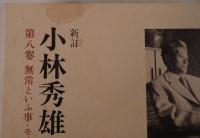 新訂
小林秀雄
第八巻 無常といふ事・モ